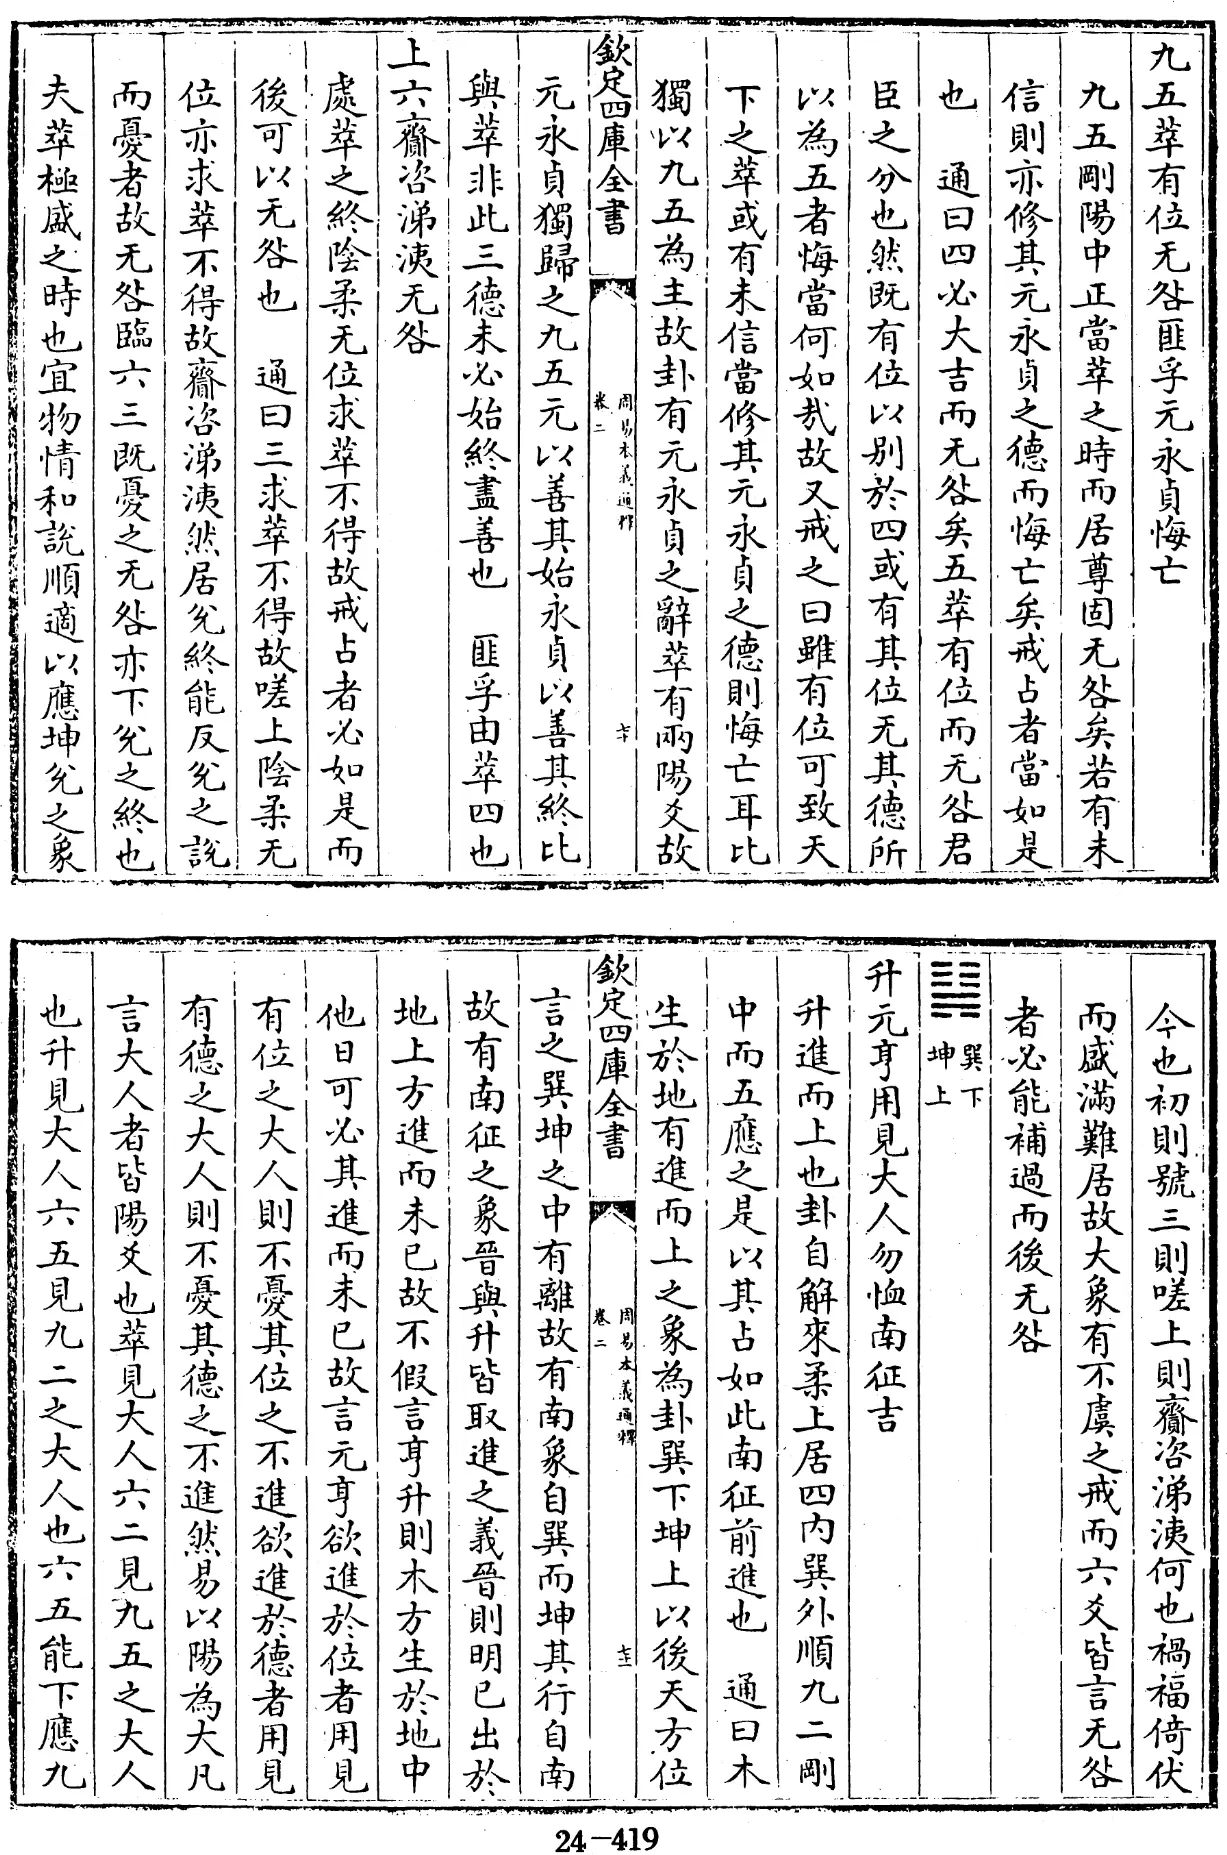 九五萃有位无咎匪孚元永貞悔亡
九五剛陽中正當萃之時而居尊固无咎矣若有未
信則亦修其元永貞之德而悔亡矣戒占者當如是
也　通曰四必大吉而无咎矣五萃有位而无咎君
臣之分也然既有位以别於四或有其位无其德所
以為五者悔當何如㦲故又戒之曰雖有位可致天
下之萃或有未信當修其元永貞之德則悔亡耳比
獨以九五為主故卦有元永貞之辭萃有兩陽爻故
欽定四庫全書
周易本義通釋
卷二
七十
元永貞獨歸之九五元以善其始永貞以善其終比
與萃非此三德未必始終盡善也　匪孚由萃四也
上六齎咨涕洟无咎
處萃之終陰柔无位求萃不得故戒占者必如是而
後可以无咎也　通曰三求萃不得故嗟上陰柔无
位亦求萃不得故齎咨涕洟然居兊終能反兊之說
而憂者故无咎臨六三既憂之无咎亦下兊之終也
夫萃極盛之時也宜物情和說順適以應坤兊之象
今也初則號三則嗟上則齎咨涕洟何也禍福倚伏
而盛滿難居故大象有不虞之戒而六爻皆言无咎
者必能補過而後无咎
巽下
坤上
升元亨用見大人勿恤南征吉
升進而上也卦自解來柔上居四内巽外順九二剛
中而五應之是以其占如此南征前進也　通曰木
生於地有進而上之象為卦巽下坤上以後天方位
欽定四庫全書
周易本義通釋
卷二
七十一
言之巽坤之中有離故有南象自巽而坤其行自南
故有南征之象晉與升皆取進之義晉則明已出於
地上方進而未已故不假言亨升則木方生於地中
他日可必其進而未已故言元亨欲進於位者用見
有位之大人則不憂其位之不進欲進於德者用見
有德之大人則不憂其德之不進然易以陽為大凡
言大人者皆陽爻也萃見大人六二見九五之大人
也升見大人六五見九二之大人也六五能下應九
24-419